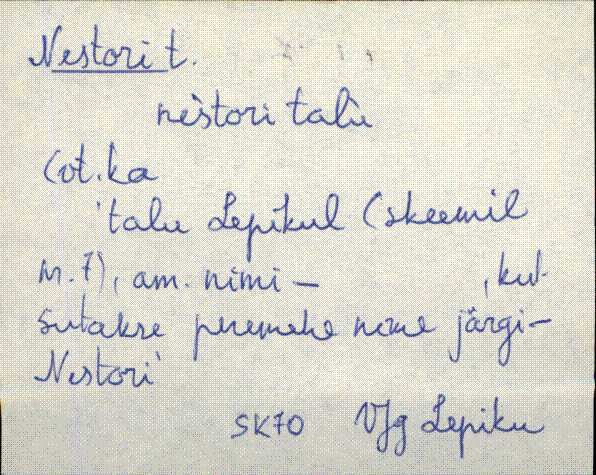 Nestori t.
nèstori talù
(vt. ka
'talu Lepikul (skeemil
nr. 7), am. nimi — , kut-
sutakse peremehe nime järgi —
Nestori'
SK70 VJg Lepiku